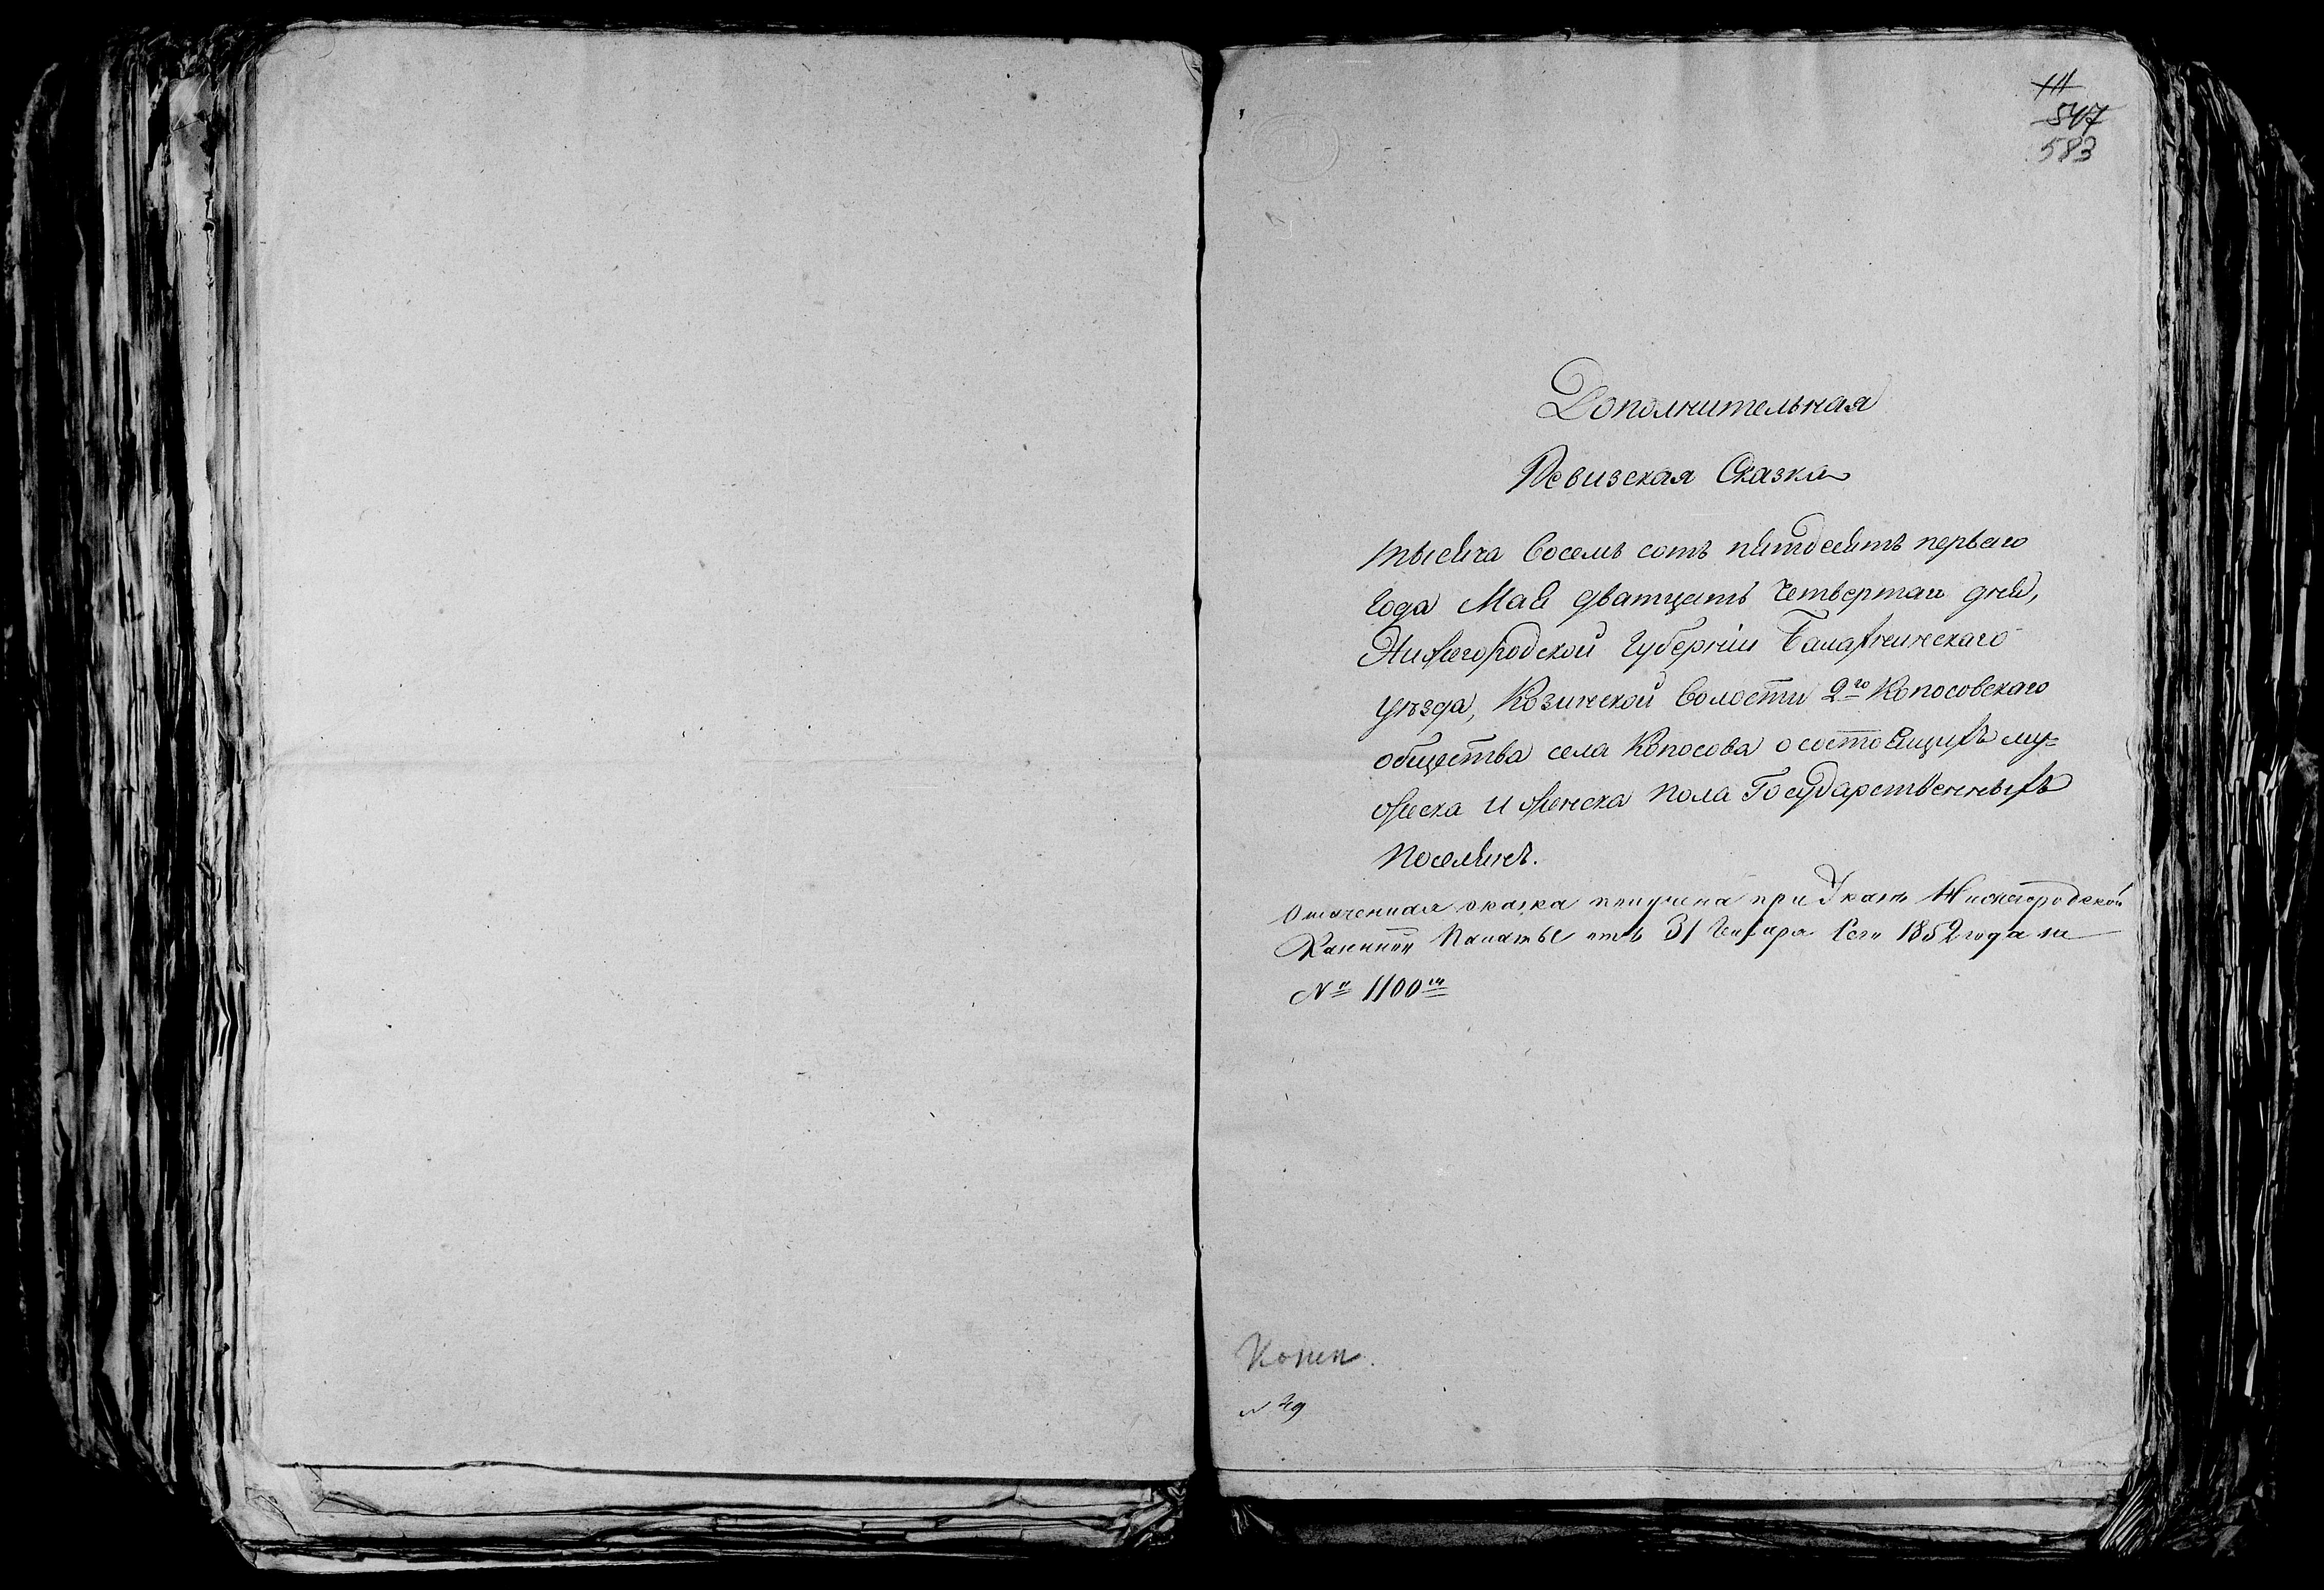 547
583
Дополнительная
Ревизская Сказка
тысяча Восемь сотъ пятдесятъ перваго
года Мая дватцать четвертаго дня,
Нижегородской Губерніи Балахнинскаго
уѣзда, Козинской Волости 2го Копосовскаго
общества села Копосова о состоящихъ му=
жеска и женска пола Государственныхъ
поселянъ.
Означенная сказка получена при Указѣ Нижегородской
Казенной Палаты отъ 31 Генваря сего 1852 года за
№ 1100м
Копи
№ 49